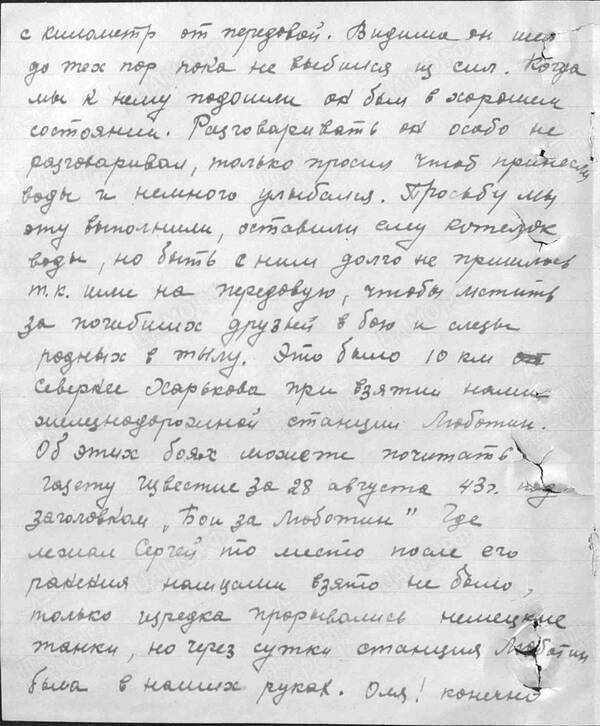 с километр от передовой. Видима он шел
до тех пор пока не выбился из сил. Когда
мы к нему подошли он был в хорошем
состоянии. Разговаривать он особо не
разговаривал, только просил чтоб принесли
воды и немного улыбался. Просьбу мы
эту выполнили, оставили ему котелок
воды, но быть с ним долго не пришлось
т.к. шли на передовую, чтобы мстить
за погибших друзей в бою и слезы
родных в тылу. Это было 10 км
Севернее Харькова при взятии нами
железнодорожной станции Люботин.
Об этих боях можете почитать
газету Известие за 28 августа 43г. под
заголовком „Бои за Люботин" Где
лежал Сергей то место после его
ранения немцами взято не было,
только изредка прорывались немецкие
танки, но через сутки станция Люботин
была в наших руках. Оля! конечно